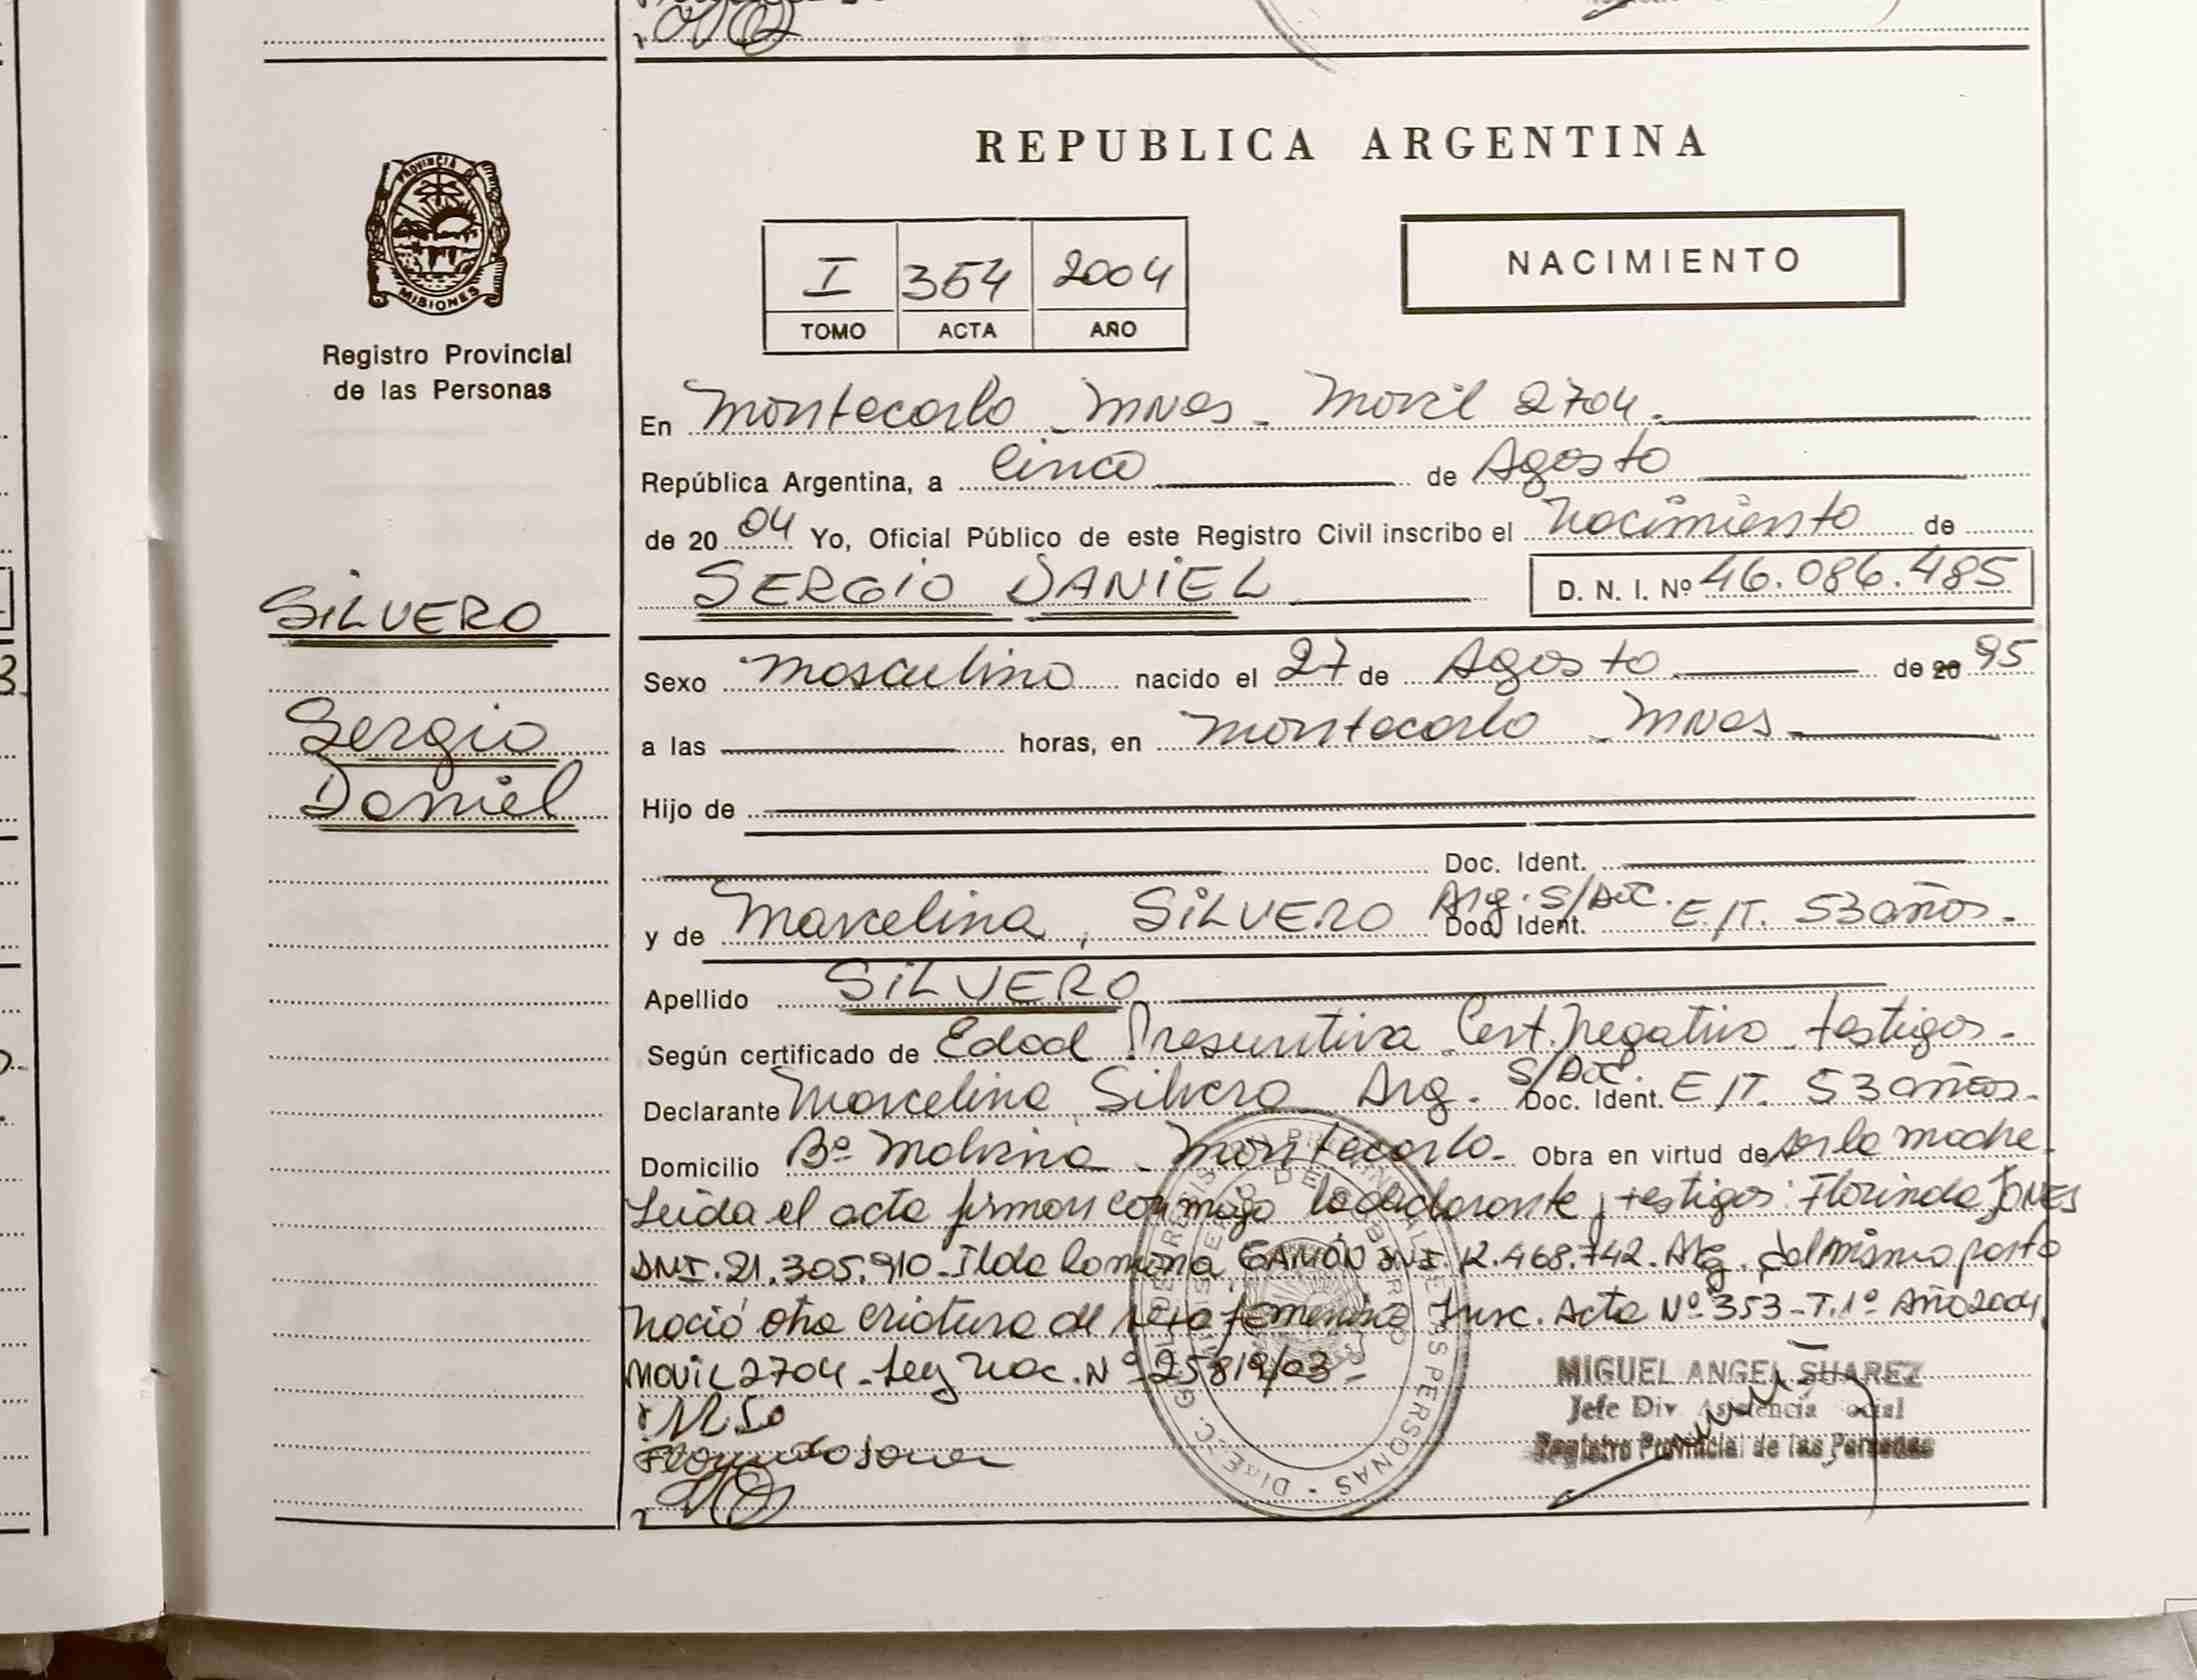 PROVINCIA DE
MISIONES
Registro Provincial
de las Personas
SILVERO
Sergio
Daniel
REPUBLICA ARGENTINA
I 354 2004
TOMO ACTA AÑO
NACIMIENTO
En Montecarlo - Mnes - Movil 2704.
República Argentina, a Cinco de Agosto
de 20 04 Yo, Oficial Público de este Registro Civil inscribo el Nacimiento de
SERGIO DANIEL D. N. I. Nº 46.086.485
Sexo masculino nacido el 27 de Agosto de 20 95
a las horas, en Montecarlo - Mnes -
Hijo de
Doc. Ident.
y de Marcelina, SILVERO Arg. S/Doc. Doc. Ident. E/T. 53 años.
Apellido SILVERO
Según certificado de Edad Presuntiva Cert. Negativo testigos.
Declarante Marcelina Silvero Arg. S/Doc. Doc. Ident. E/T. 53 años.
Domicilio Bº Malvina - Montecarlo - Obra en virtud de ser la madre.
Leida el acta firman conmigo la declarante y testigos: Florinda JONES
DNI. 21.305.910 - Ilda Romina GAMÓN DNI. 12.468.742. Arg. del mismo parto
Nació otra criatura de sexo femenino Insc. Acta Nº 353 - T. 1º Año 2004
MOVIL 2704 - Ley Nac. Nº 25819/03 -
MIGUEL ANGEL SUAREZ
Jefe Div. Asistencia Social
Registro Provincial de las Personas